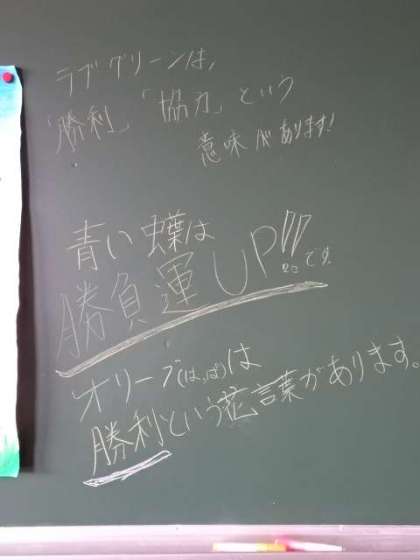 ラブグリーンは,
「勝利」「協力」という
意味があります!
青い蝶は
勝負運UP!!!です。
オリーブ(はっぱ)は
勝利という花言葉があります。